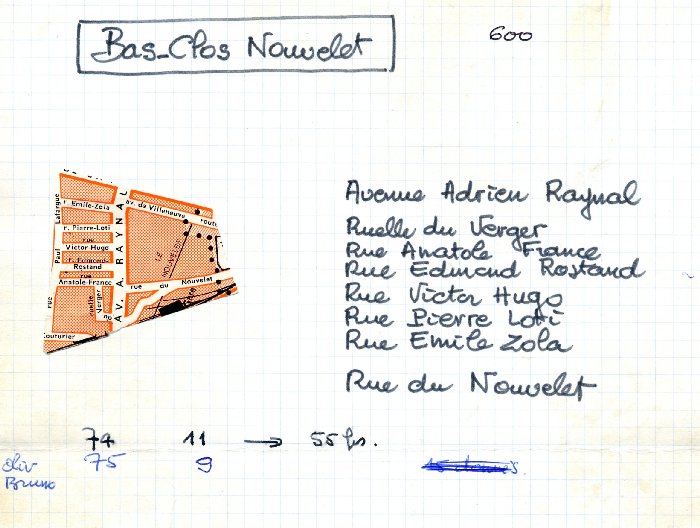 Bas-Clos Nouvelet
600
r. Emile-Zola
av. de Villeneuve
route
r. Pierre-Loti
Victor-Hugo
r. Edmond-
Rostand
Anatole-France
rue du Nouvelet
Paul Lafargue
rue
ruelle Verger
AV. A. RAYNAL
LE NOUVELET
Couturier
Avenue Adrien Raynal
Ruelle du Verger
Rue Anatole France
Rue Edmond Rostand
Rue Victor Hugo
Rue Pierre Loti
Rue Emile Zola
Rue du Nouvelet
74 11 → 55 frs.
Oliv 75 9
Bruno